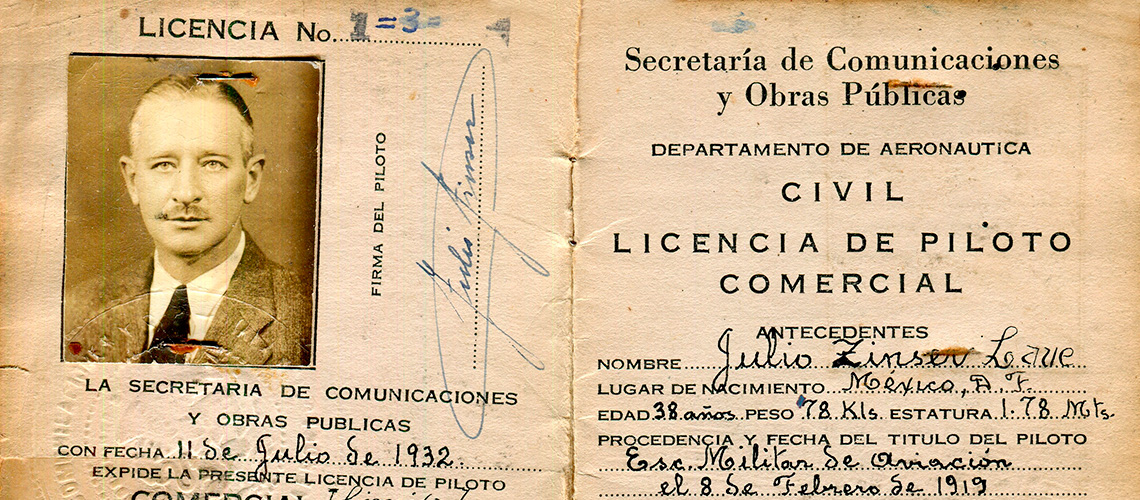 LICENCIA No. 1=3=
FIRMA DEL PILOTO
Julio Zinser
LA SECRETARIA DE COMUNICACIONES
Y OBRAS PUBLICAS
CON FECHA 11 de Julio de 1932
EXPIDE LA PRESENTE LICENCIA DE PILOTO
COMERCIAL
Secretaría de Comunicaciones
y Obras Públicas
DEPARTAMENTO DE AERONAUTICA
CIVIL
LICENCIA DE PILOTO
COMERCIAL
ANTECEDENTES
NOMBRE Julio Zinser
LUGAR DE NACIMIENTO México, D. F.
EDAD 38 años PESO 78 Kls. ESTATURA 1.78 Mts.
PROCEDENCIA Y FECHA DEL TITULO DEL PILOTO
Esc. Militar de Aviación
el 8 de Febrero de 1919